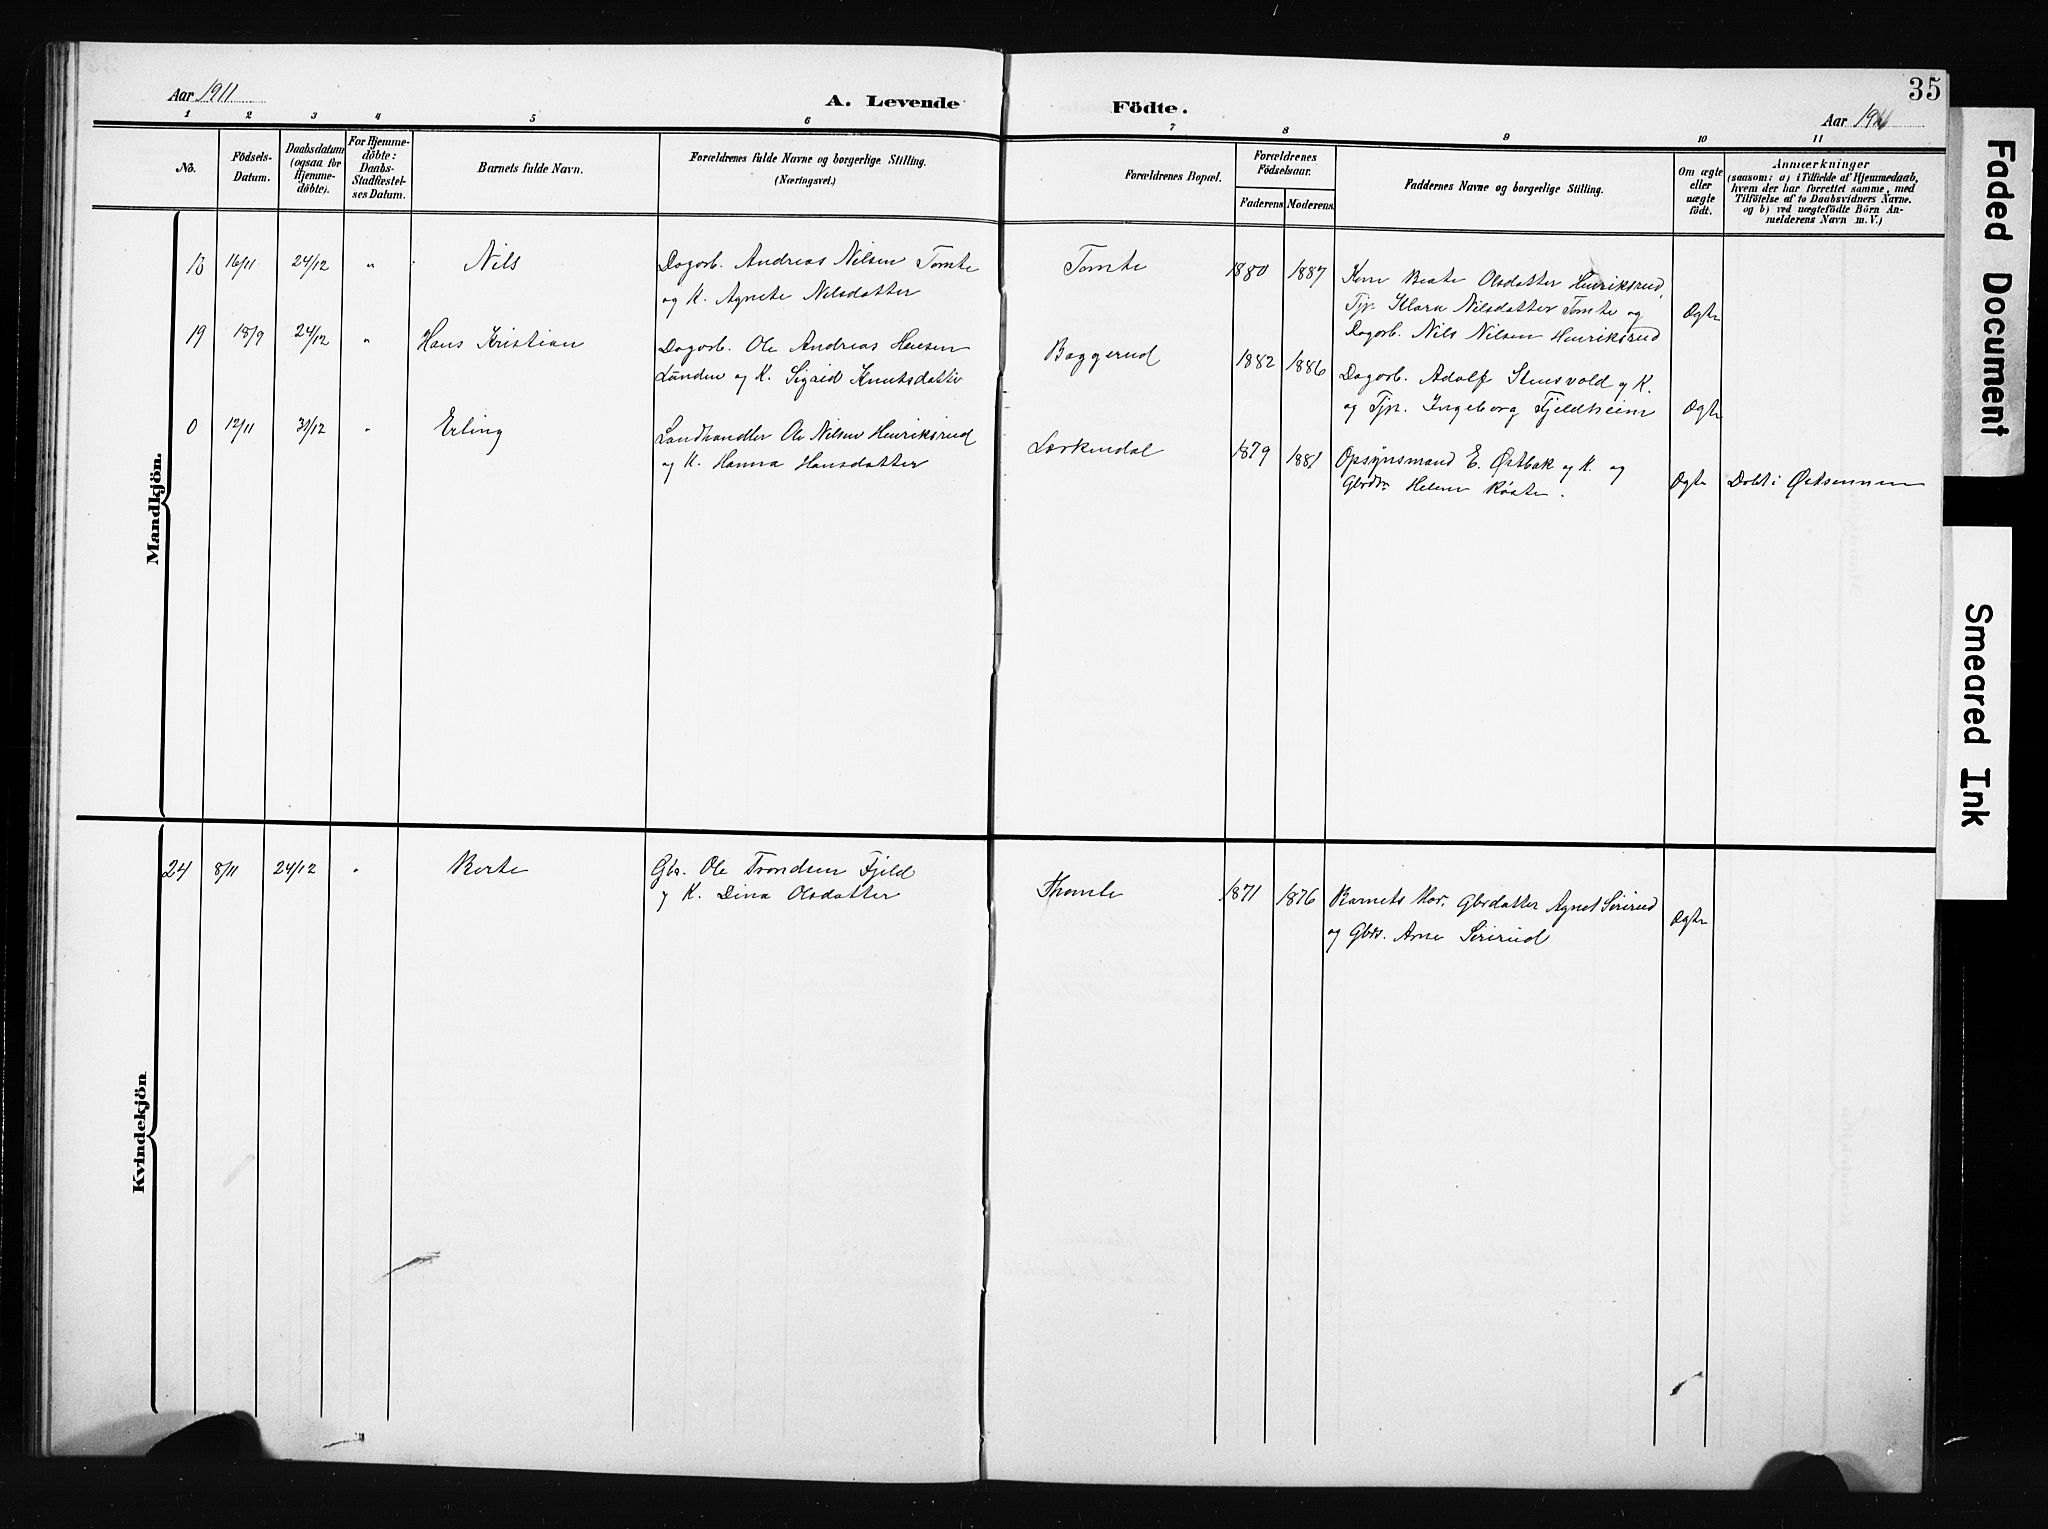 Aar 1911
A. Levende
Födte.
Aar 1911
35
1 2 3 4 5 6 7 8 9 10 11
No.
Födsels-
Datum.
Daabsdatum
(ogsaa for
Hjemme-
døbte).
For Hjemme-
döbte:
Daabs-
Stadfæstel-
ses Datum.
Barnets fulde Navn.
Forældrenes fulde Navne og borgerlige Stilling.
(Næringsvei.)
Forældrenes Bopæl.
Forældrenes
Födselsaar.
Faderens Moderens.
Faddernes Navne og borgerlige Stilling.
Om ægte
eller
uægte
født.
Anmærkninger
(saasom: a) i Tilfælde af Hjemmedaab,
hvem der har forrettet samme, med
Tilföielse af to Daabsvidners Navne.
og b) ved uægtefödte Börn An-
melderens Navn m. V.)
Mandkjön.
18 16/11 24/12 " Nils
Dagarb. Andreas Nilsen Tomte
og K. Agnete Nilsdatter
Tomte 1880 1887
Kone Beate Olsdatter Henriksrud,
Tjp. Klara Nilsdatter Tomte og
Dagarb. Nils Nilsen Henriksrud
Ægte
19 18/9 24/12 " Hans Kristian
Dagarb. Ole Andreas Hansen
Lunden og K. Sigrid Knutsdatter
Baggerud 1882 1886
Dagarb. Adolf Stensvold og K.
og Tjp. Ingeborg Fjeldheim
Ægte
0 12/11 31/12 " Erling
Landhandler Ole Nilsen Henriksrud
og K. Hanna Hansdatter
Lerkendal 1879 1881
Opsynsmand E. Østbak og K. og
Gbrdtr. Helene Røste.
Ægte Døbt i Østsinnen
Kvindekjön
24 8/11 24/12 " Berte
Gbr. Ole Trondsen Fjeld
og K. Dina Olsdatter
Thomte 1871 1876
Barnets Mor, Gbrdatter Agnet Sørirud
og Gbrs. Arne Sørirud
Ægte
Faded Document
Smeared Ink